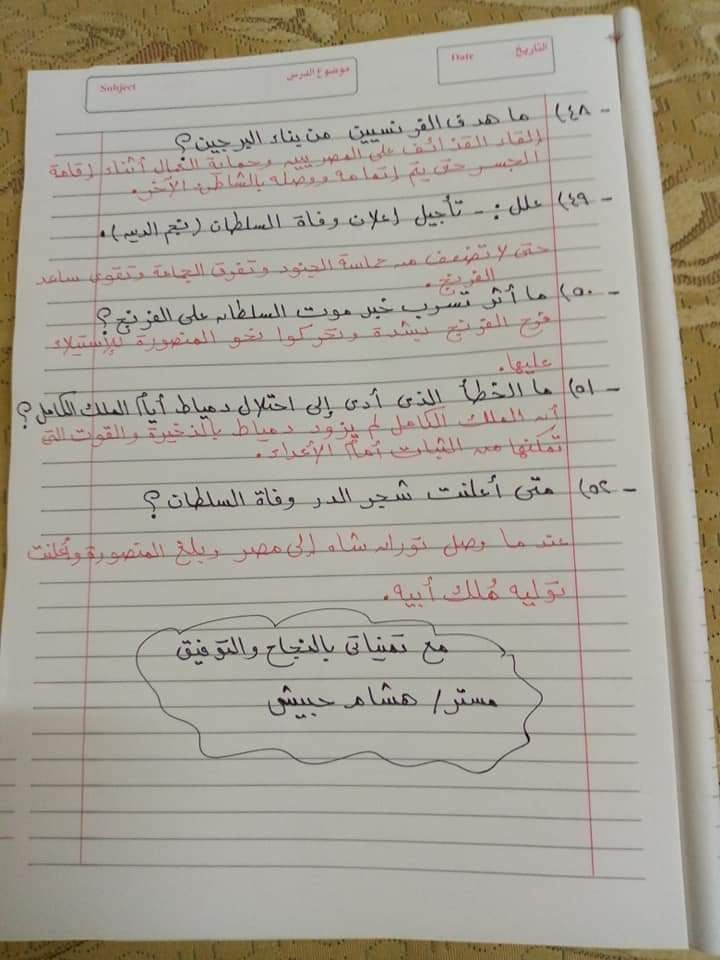 Subject
موضوع الدرس
Date
التاريخ
٤٨) - ما هدف الفرنسيين من بناء البرجين؟
إلقاء القذائف على المصريين وحماية العمال أثناء إقامة
الجسر حتى يتم إتمامه ووصله بالشاطئ الآخر.
٤٩) - علل :- تأجيل إعلان وفاة السلطان (نجم الدين).
حتى لا تضعف من حماسة الجنود وتفرق الجماعة وتقوى ساعد
الفرنج.
٥٠) - ما أثر تسرب خبر موت السلطان على الفرنج؟
فرح الفرنج بشدة وتحركوا نحو المنصورة للإستيلاء
عليها.
٥١) - ما الخطأ الذى أدى إلى احتلال دمياط أيام الملك الكامل؟
أنه الملك الكامل لم يزود دمياط بالذخيرة والقوت التى
تمكنها من الثبات أمام الأعداء.
٥٢) - متى أعلنت شجر الدر وفاة السلطان؟
عند ما وصل تورانشاه إلى مصر وبلغ المنصورة وأعلنت
توليه مُلك أبيه.
مع تمنياتى بالنجاح والتوفيق
مستر/ هشام حبيش